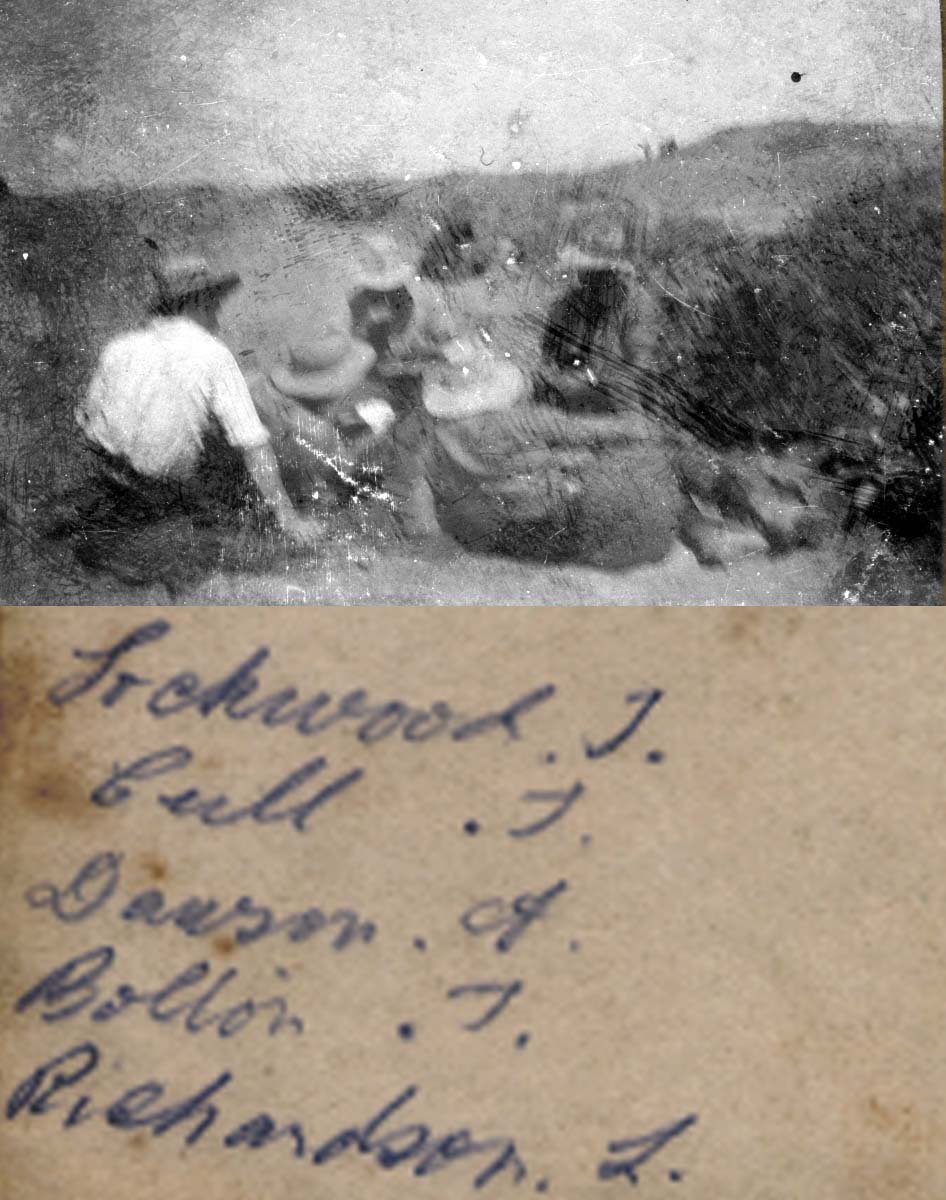 Lockwood. J.
Cull . T.
Dawson. A.
Bolton . T.
Richardson. L.